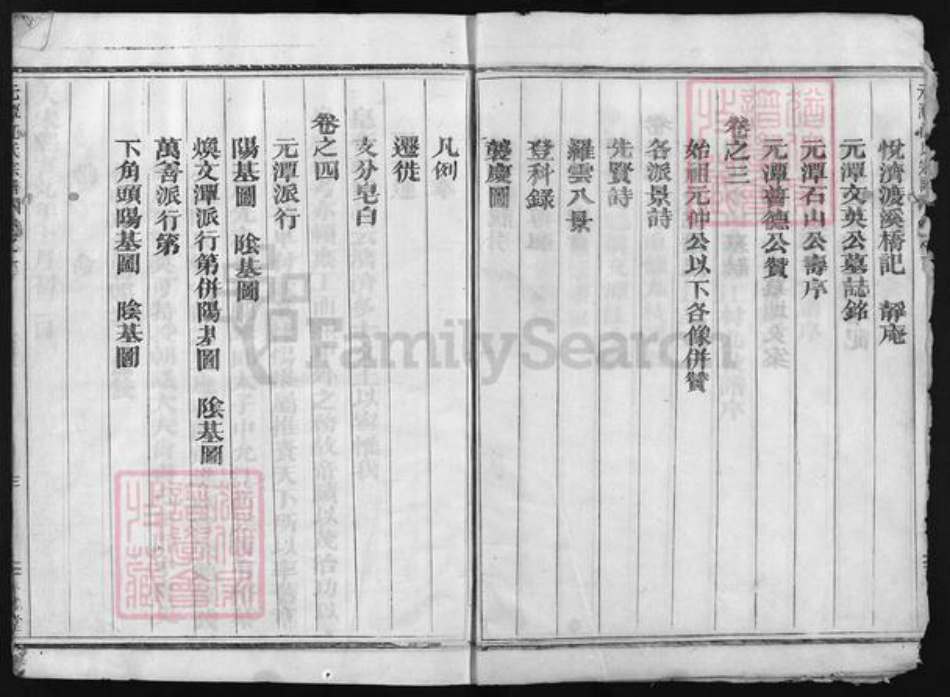 悅濟渡溪橋記　靜庵
元潭文英公墓誌銘
元潭石山公壽序
元潭普德公贊
卷之三
始祖元仲公以下各像併贊
各派景詩
先賢詩
羅雲八景
登科錄
襲慶圖
凡例
遷徙
支分皂白
卷之四
元潭派行
陽基圖　陰基圖
煥文潭派行第併陽基圖　陰基圖
萬善派行第
下角頭陽基圖　陰基圖
FamilySearch